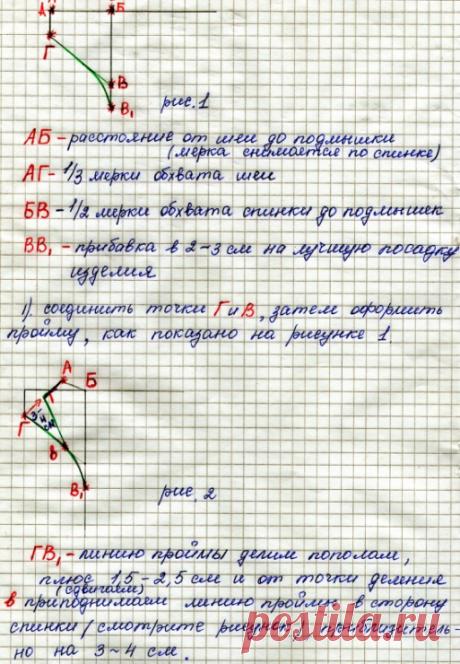 А Б
Г
В
В₁ рис. 1
АБ - расстояние от шеи до подмышки
(мерка снимается по спинке)
АГ - 1/3 мерки обхвата шеи
БВ - 1/2 мерки обхвата спинки до подмышек
ВВ₁ - прибавка в 2-3 см на лучшую посадку
изделия
1). соединить точки Г и В, затем оформить
пройму, как показано на рисунке 1.
А
Б
Г 3-4 см
в
В₁ рис. 2
ГВ₁ - линию проймы делим пополам,
плюс 1,5-2,5 см и от точки деления
(сдвигаем)
в приподнимаем линию проймы в сторону
спинки (смотрите рисунок) приблизитель-
но на 3~4 см.
postila.ru